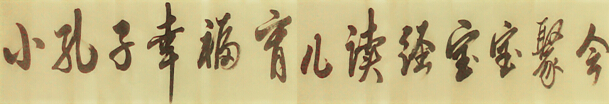 小孔子幸福育儿读经宝宝聚会